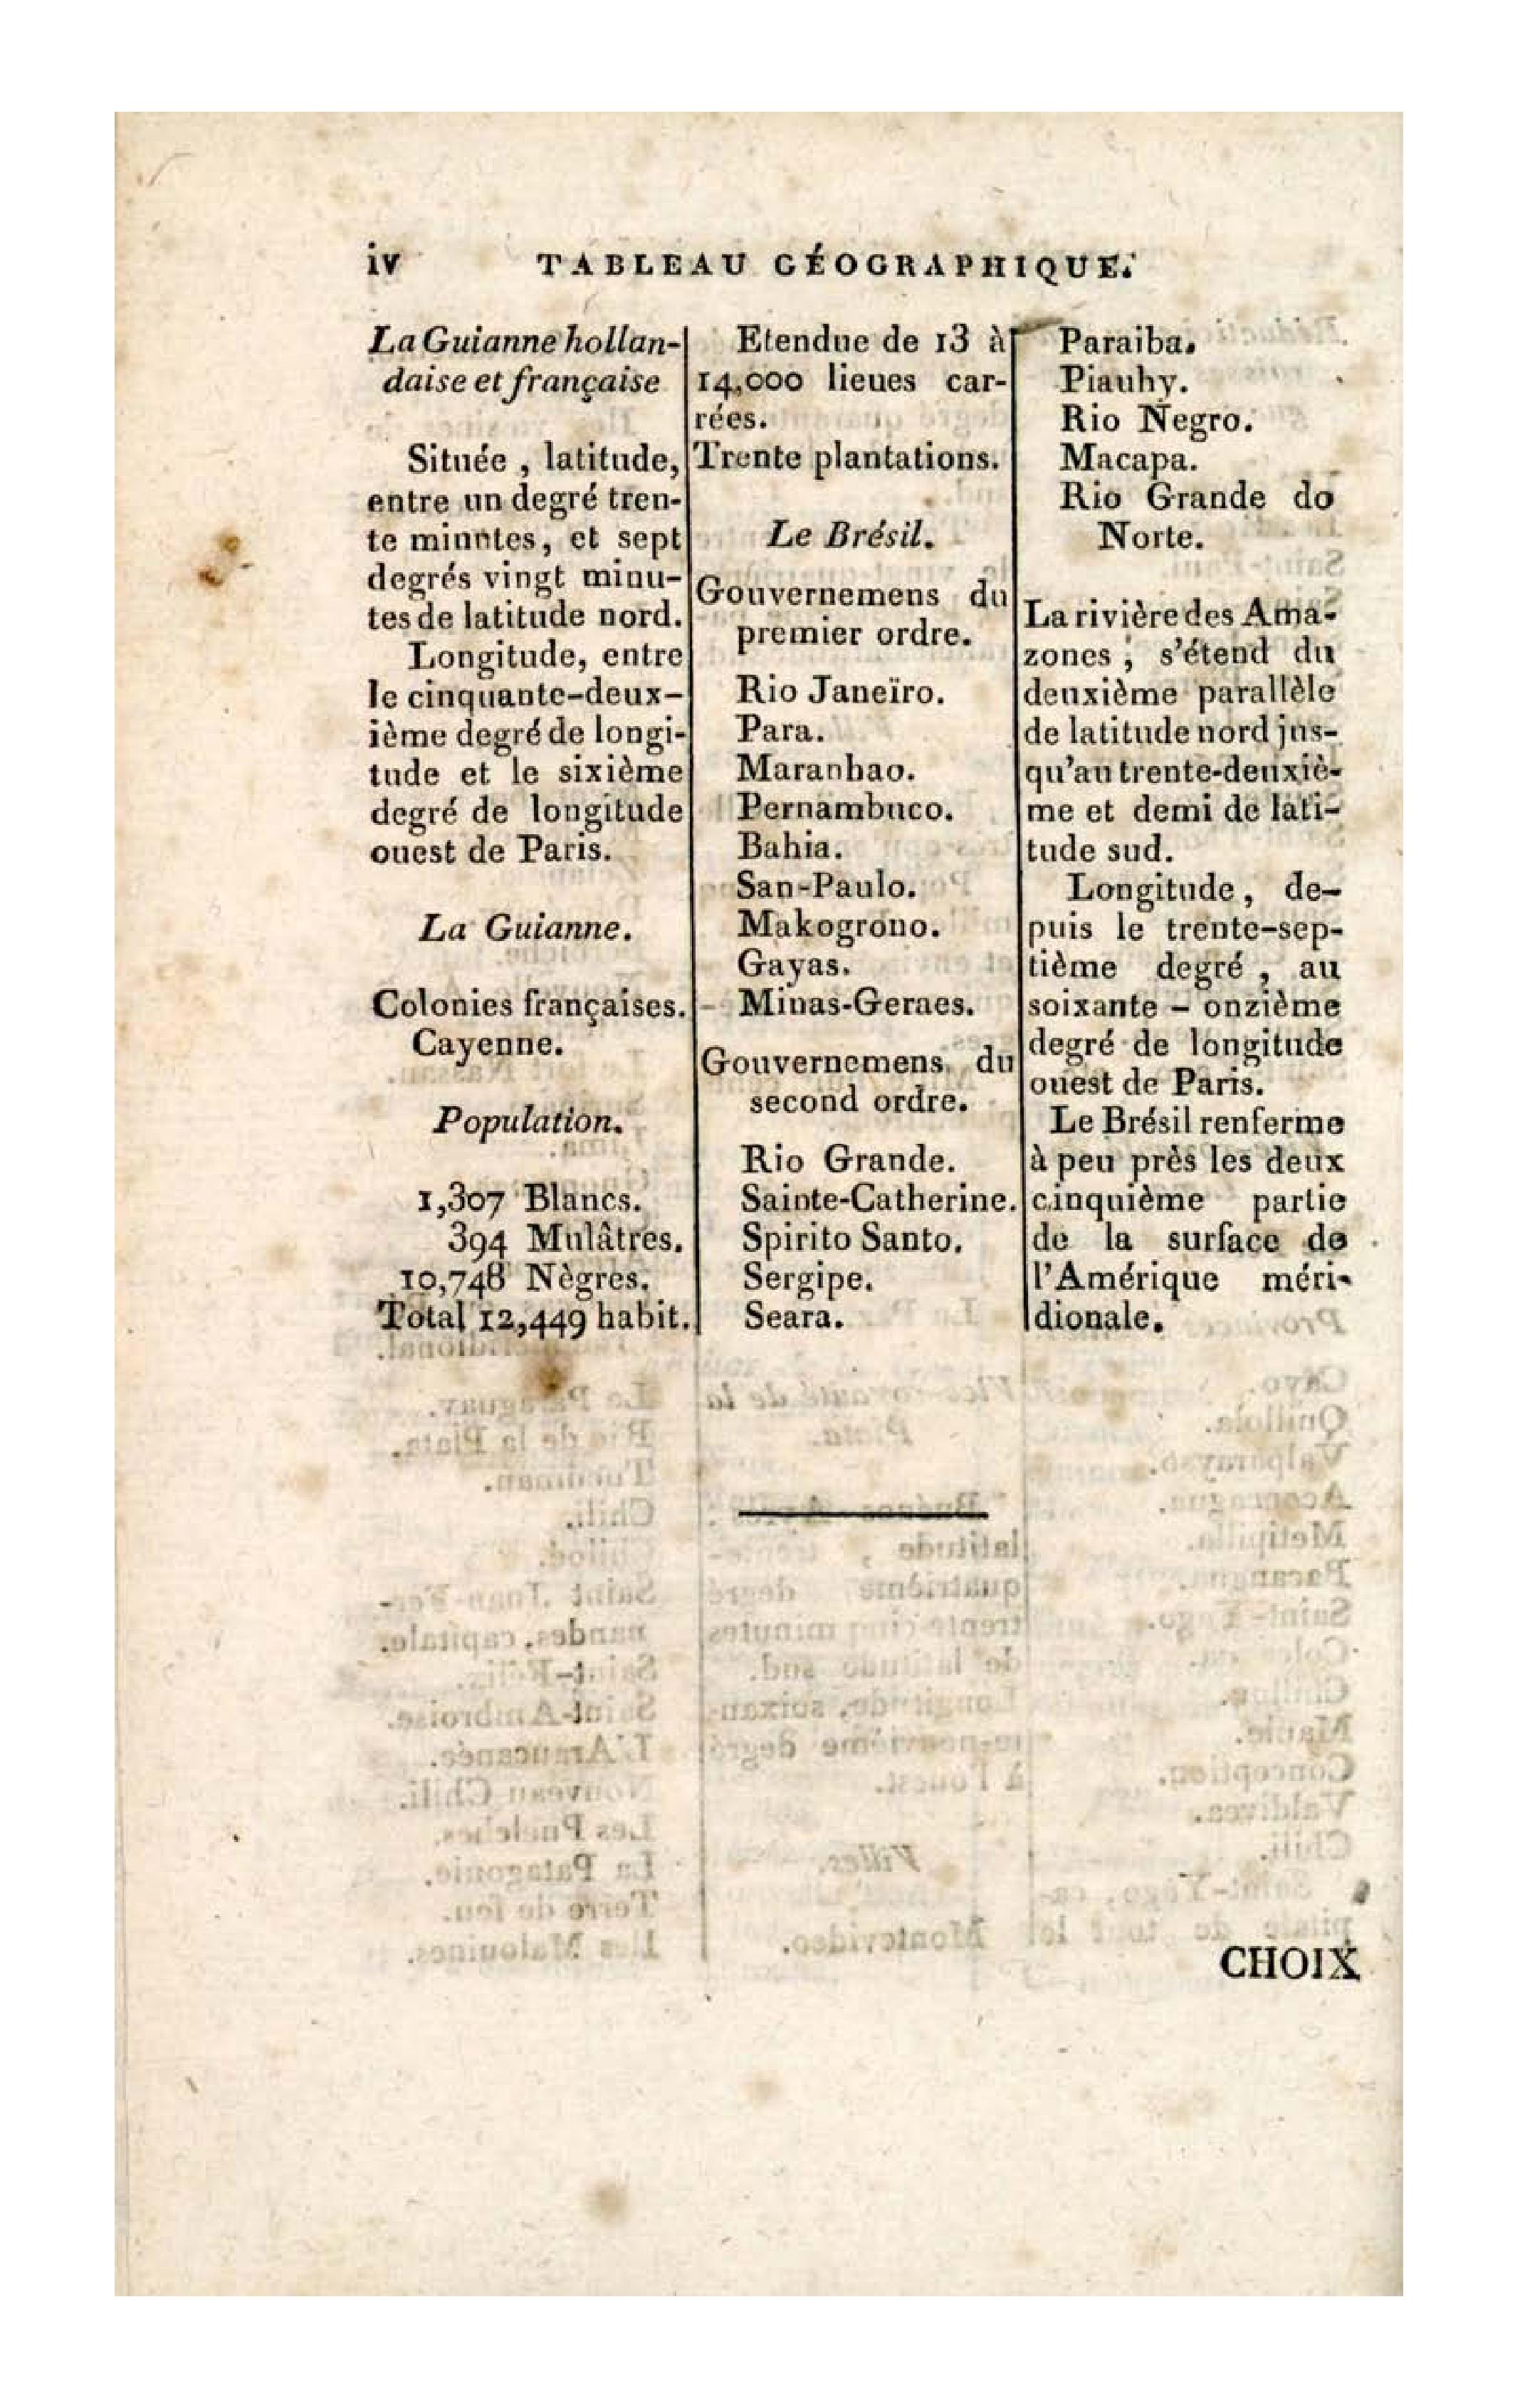 iv TABLEAU GÉOGRAPHIQUE.
La Guianne hollan-
daise et française
Située , latitude,
entre un degré tren-
te minutes, et sept
degrés vingt minu-
tes de latitude nord.
Longitude, entre
le cinquante-deux-
ième degré de longi-
tude et le sixième
degré de longitude
ouest de Paris.
La Guianne.
Colonies françaises.
Cayenne.
Population.
1,307 Blancs.
394 Mulâtres.
10,748 Nègres.
Total 12,449 habit.
Etendue de 13 à
14,000 lieues car-
rées.
Trente plantations.
Le Brésil.
Gouvernemens du
premier ordre.
Rio Janeïro.
Para.
Maranhao.
Pernambuco.
Bahia.
San-Paulo.
Makogrono.
Gayas.
Minas-Geraes.
Gouvernemens du
second ordre.
Rio Grande.
Sainte-Catherine.
Spirito Santo.
Sergipe.
Seara.
Paraiba.
Piauhy.
Rio Negro.
Macapa.
Rio Grande do
Norte.
La rivière des Ama-
zones , s'étend du
deuxième parallèle
de latitude nord jus-
qu'au trente-deuxiè-
me et demi de lati-
tude sud.
Longitude, de-
puis le trente-sep-
tième degré , au
soixante - onzième
degré de longitude
ouest de Paris.
Le Brésil renferme
à peu près les deux
cinquième partie
de la surface de
l'Amérique méri-
dionale.
CHOIX